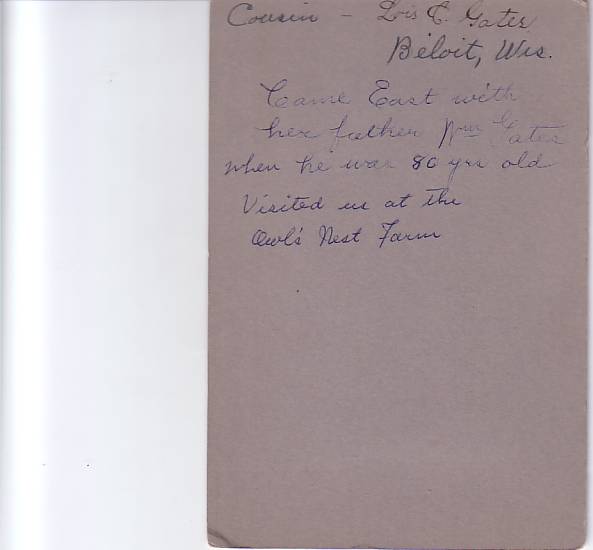 Cousin - Lois C. Gates
Beloit, Wis.
Came East with
her father Wm Gates
when he was 80 yrs old
Visited us at the
Owl's Nest Farm